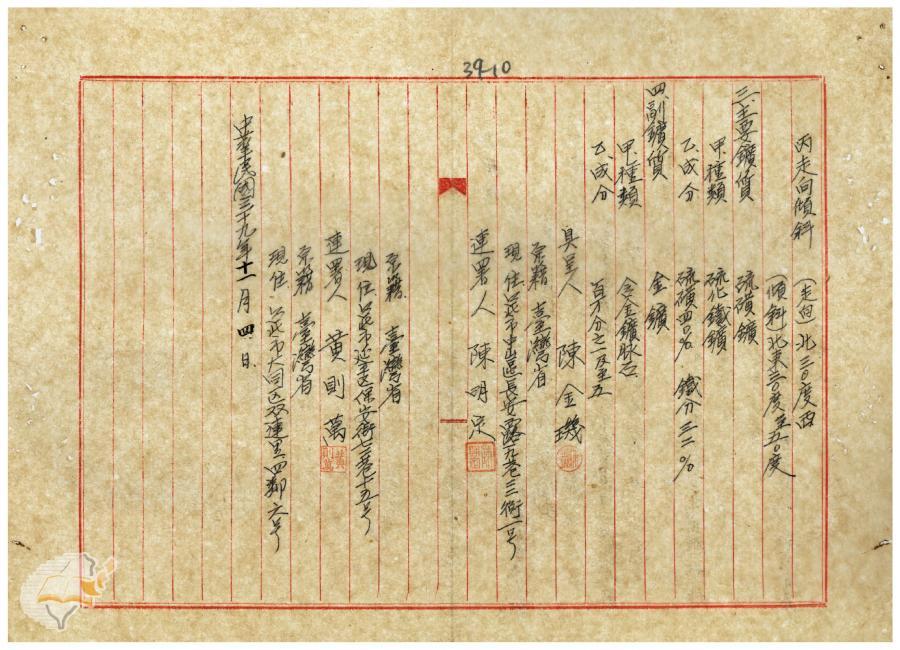 39-10
丙走向傾斜 （走向）北三〇度西
（傾斜）北東二〇度至五〇度
三、主要鑛質 硫磺鑛
甲、種類 硫化鐵鑛
乙、成分 硫磺四〇％ 鐵分三二％
四、副鑛質 金鑛
甲、種類 含金鑛脉石
乙、成分 百万分之一及至五
具呈人 陳金璣
原籍 臺灣省
現住 台北市中山區長安西路九巷三衖一号
連署人 陳明
原籍 臺灣省
現住 台北市延平區保安街七三巷十五号
連署人 黃則萬
原籍 臺灣省
現住 台北市大同区双連里四鄰六号
中華民國三十九年十一月四日